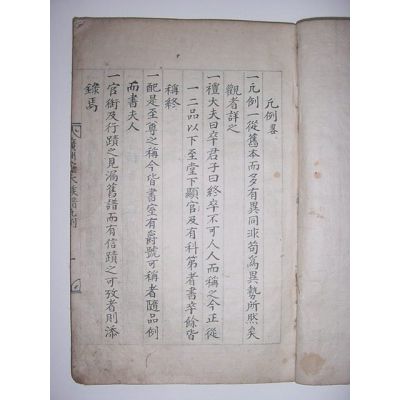 凡例畧
一凡例一從舊本而多有異同非苟爲異勢所然矣
觀者詳之
一禮大夫曰卒君子曰終卒不可人人而稱之今正從
一二品以下至堂下顯官及有科第者書卒餘皆
稱終
一配是至尊之稱今皆書室有爵號可稱者隨品例
而書夫人
一官銜及行蹟之見漏舊譜而有信蹟之可攷者則添
錄焉